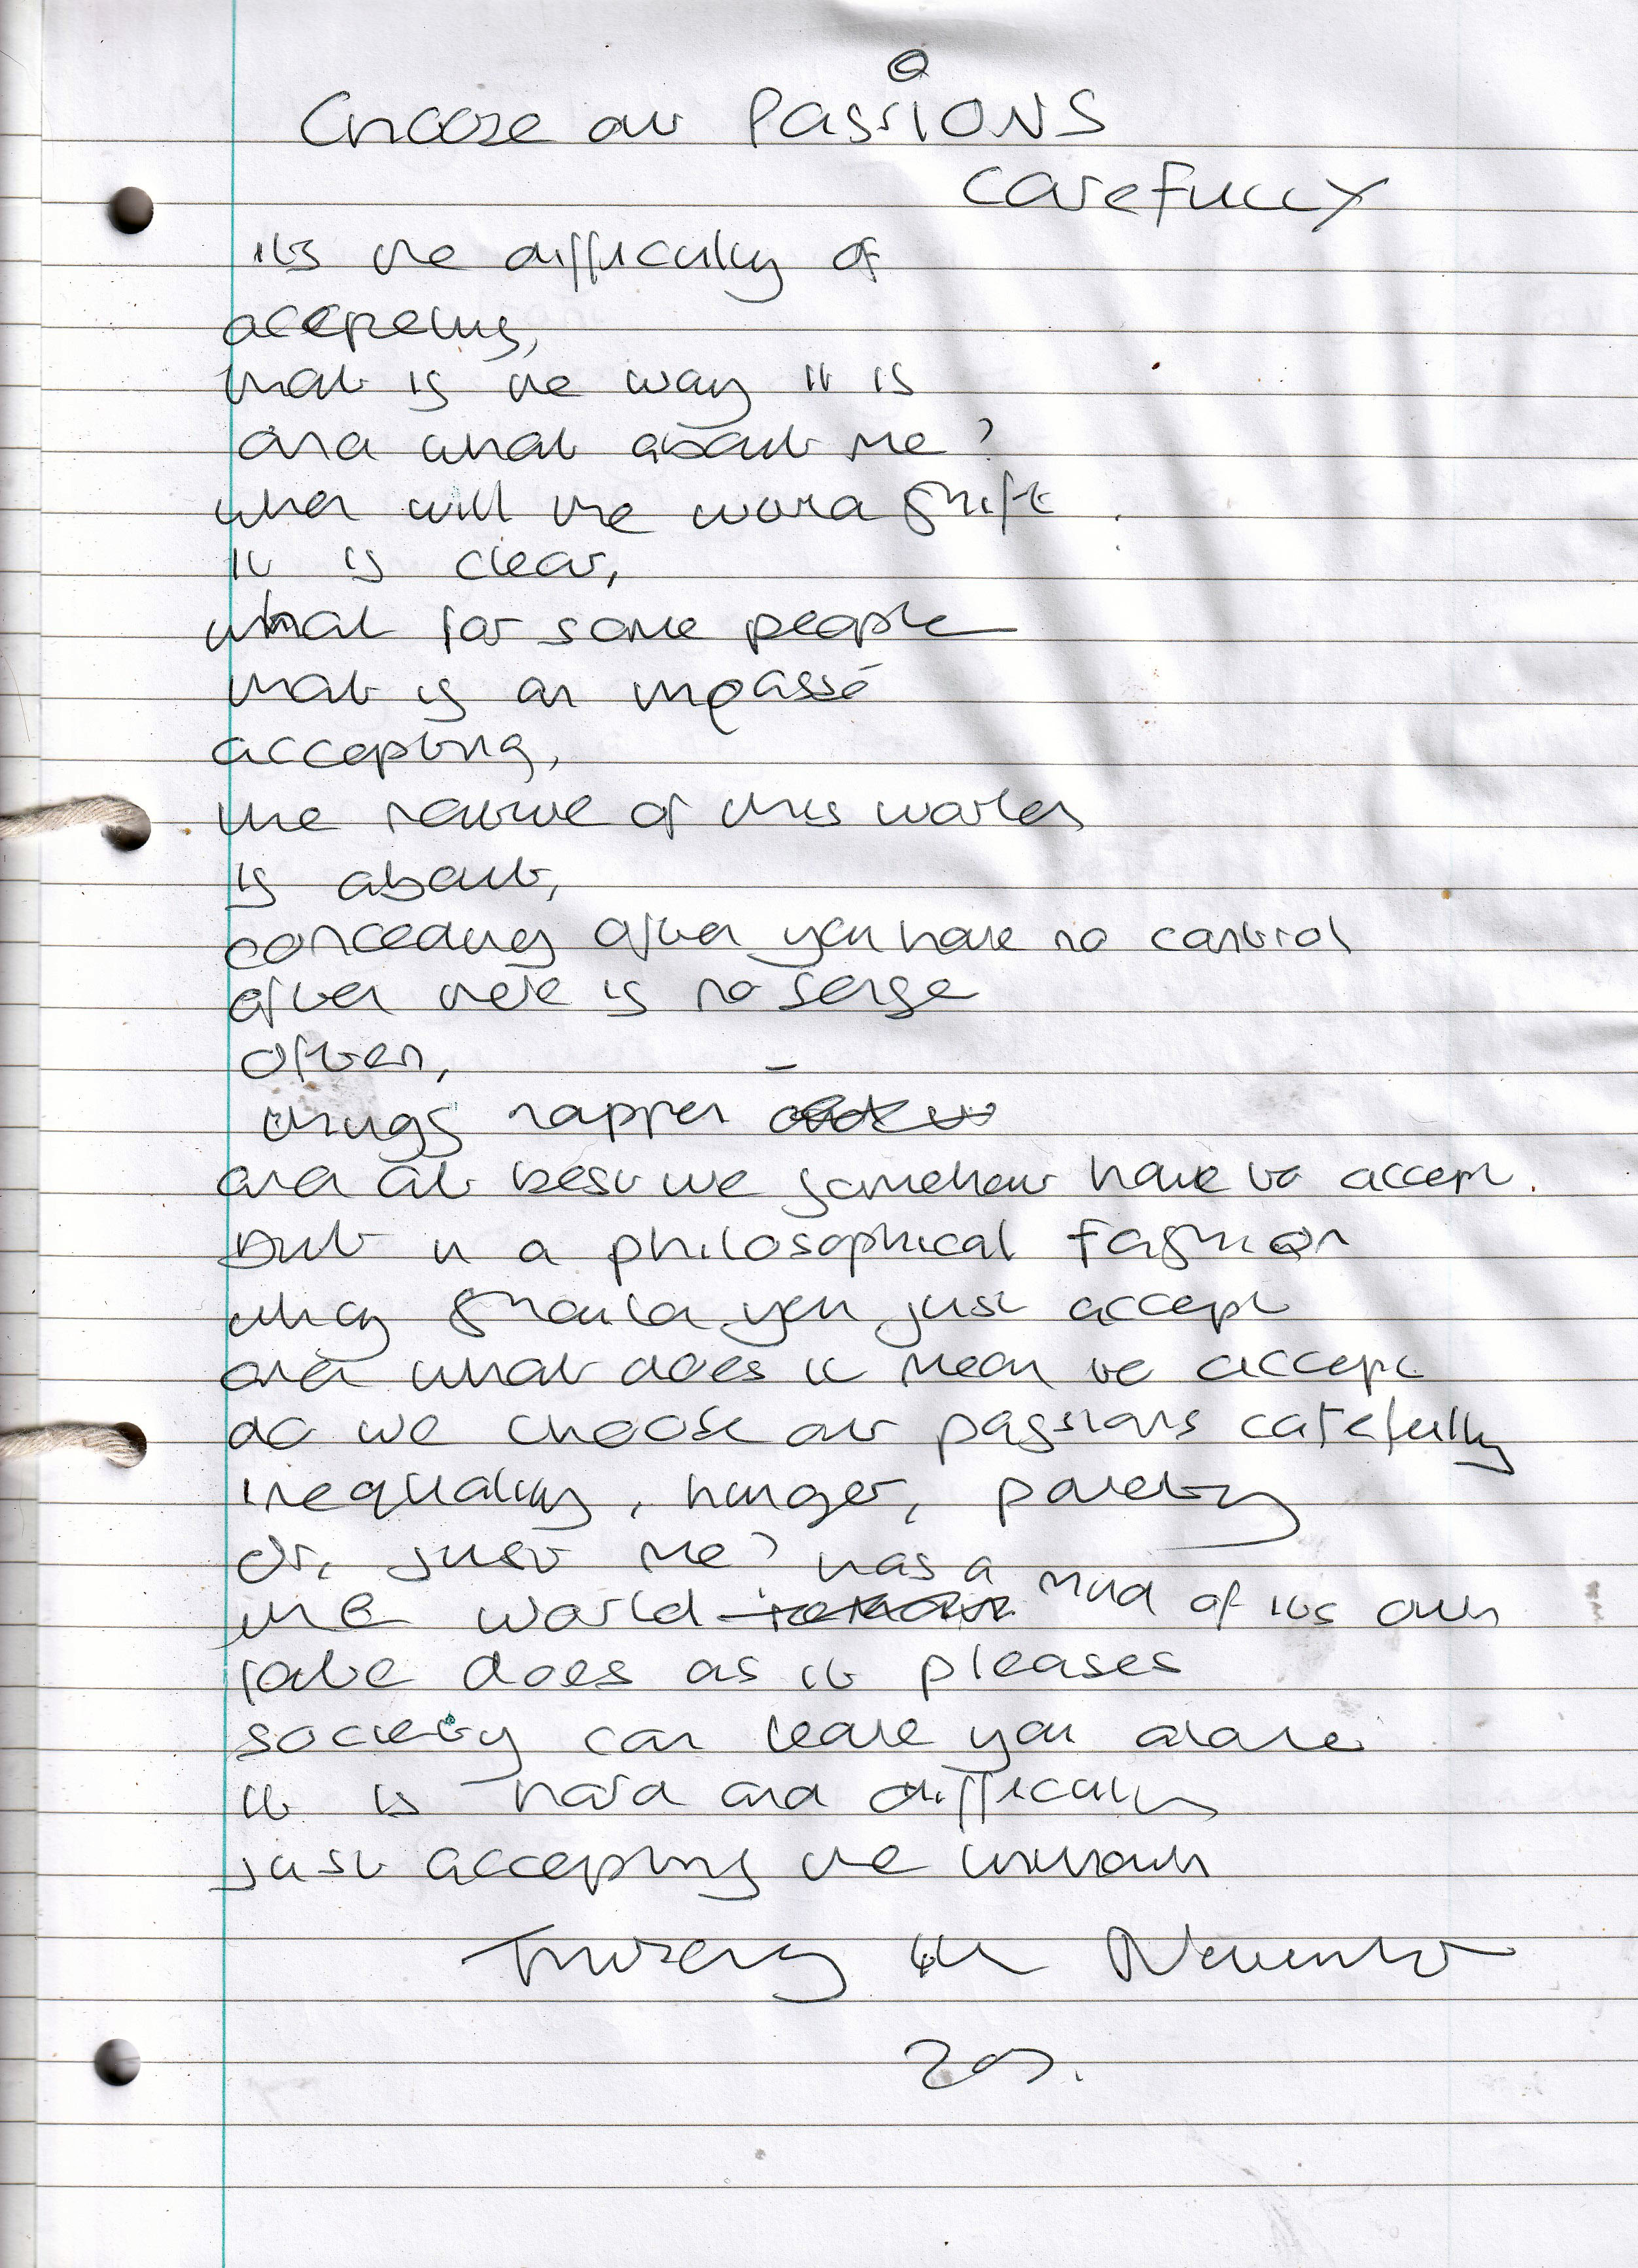 Choose our Passions
Carefully
its the difficulty of
accepting,
that is the way it is
and what about me?
when will the world shift
it is clear,
that for some people
that is an impassé
accepting,
the nature of this world
is about,
conceding often you have no control
often there is no sense
often,
things happen
and at best we somehow have to accept.
but in a philosophical fashion
why should you just accept
and what does it mean to accept
do we choose our passions carefully
inequality, hunger, poverty
or, just me?
the world has a mind of its own
fate does as it pleases
society can leave you alone
it is hard and difficult
just accepting the unknown
4th November